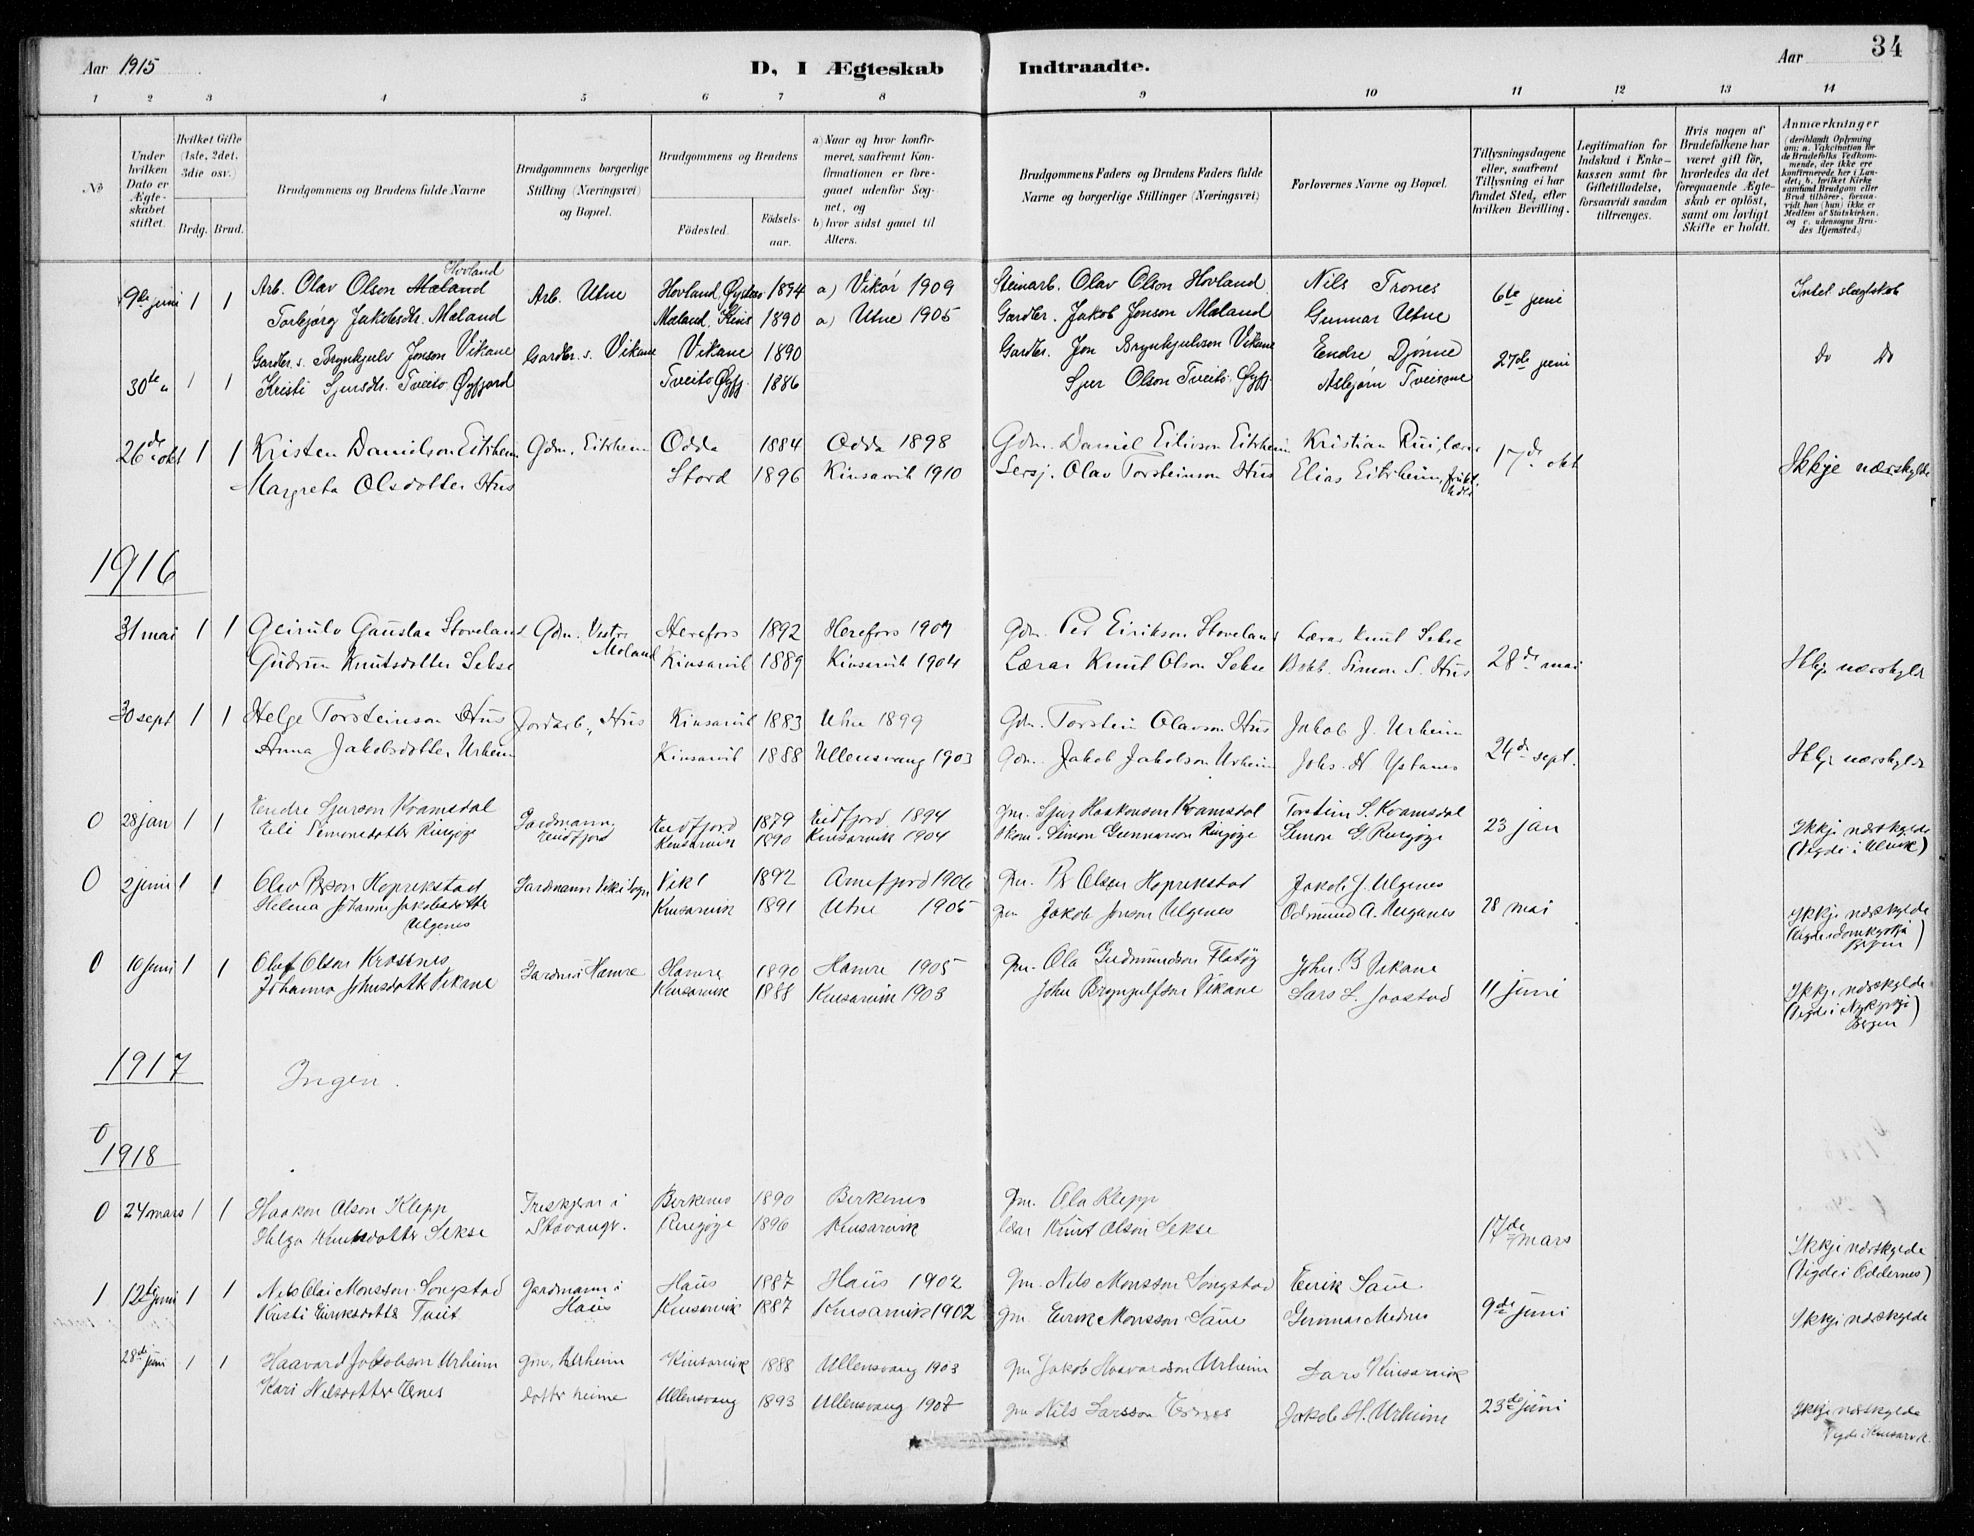 34
Aar 1915
D, I Ægteskab Indtraadte.
Aar
1 2 3 4 5 6 7 8 9 10 11 12 13 14
No
Under hvilken Dato er Ægteskabet stiftet.
Hvilket Gifte (1ste, 2det, 3die osv.)
Brdg. Brud.
Brudgommens og Brudens fulde Navne
Brudgommens borgerlige Stilling (Næringsvei) og Bopæl.
Brudgommens og Brudens
Fødested.
Fødselsaar.
a) Naar og hvor konfirmeret, saafremt Konfirmationen er foregaaet udenfor Sognet, og
b) hvor sidst gaaet til Alters.
Brudgommens Faders og Brudens Faders fulde Navne og borgerlige Stillinger (Næringsvei)
Forlovernes Navne og Bopæl.
Tillysningsdagene eller, saafremt Tillysning ei har fundet Sted, efter hvilken Bevilling.
Legitimation for Indskud i Enkekassen samt for Giftetilladelse, forsaavidt saadan tiltrænges.
Hvis nogen af Brudefolkene har været gift før, hvorledes da det foregaaende Ægteskab er opløst, samt om lovligt Skifte er holdt.
Anmærkninger (deriblandt Oplysning om: a. Vakcination for de Brudefolks Vedkommende, der ikke ere konfirmerede her i Landet; b. hvilket Kirkesamfund Brudgom eller Brud tilhører, forsaavidt han (hun) ikke er Medlem af Statskirken, og c. udensogns Brudes Hjemsted.)
9de juni 1 1 Arb. Olav Olson Mæland Hovland Arb. Utne Hovland, Øystese 1894 a) Vikør 1909 Steinarb. Olav Olson Hovland Nils Trones 6te juni Intet slægtskab
Torbjørg Jakobsdtr. Mæland Mæland, Kins 1890 a) Utne 1905 Gardbr. Jakob Jonson Mæland Gunnar Utne
Gardbr. s. Brynhjulv Jonson Vikane Gardbr. s. Vikane Vikane 1890 Gardbr. Jon Brynhjulson Vikane Endre Djønne 27de juni Do Do
30te " 1 1 Kristi Sjursdtr. Tveito Øyfjord Tveito Øyfj. 1886 Sjur Olson Tveito Øyfj. Asbjørn Tveisme
26de okt 1 1 Kristen Danielson Eitrheim Gdm. Eitrheim Odda 1884 Odda 1898 Gdm. Daniel Eilivson Eitrheim Kristian 17de okt Ikkje nærskylde
Margreta Olsdotter Hus Stord 1896 Kinsarvik 1910 Sersj. Olav Torsteinson Hus Elias Eitrheim,
1916
31 mai 1 1 Geirulv Gauslaa Stoveland Gdm. Vestre Moland Herefors 1892 Herefors 1907 Gdm. Per Eirikson Stoveland Lærar Knut Sekse 28de mai Ikkje nærskylde
Gudrun Knutsdotter Sekse Kinsarvik 1889 Kinsarvik 1904 Lærar Knut Olson Sekse Simon S. Hus
30 sept 1 1 Helge Torsteinson Hus Jordarb., Hus Kinsarvik 1883 Utne 1899 Gdm. Torstein Olavson Hus Jakob J. Urheim 24de sept. Ikkje nærskylde
Anna Jakobsdotter Urheim Kinsarvik 1888 Ullensvang 1903 Gdm. Jakob Jakobson Urheim Johs. H Ystanes
0 28 jan 1 1 Endre Sjurson Kvamsdal Gardmann, Eidfjord Eidfjord 1879 Eidfjord 1894 Gm. Sjur Haakonson Kvamsdal Torstein S. Kvamsdal 23 jan Ikkje nærskylde
Eli Simonsdotter Ringøy Kinsarvik 1890 Kinsarvik 1904 Skom. Simon Gunnarson Ringøy Simon G. Ringøy (Vigde i Ulvik)
0 2 juni 1 1 Olav Person Hoprekstad Gardmann Vik i Sogn Vik 1892 Arnefjord 1906 Gm. Per Olsen Hoprekstad Jakob J. Ulgenes 28 mai Ikkje nærskylde
Helena Johanne Jakobsdotter Ulgenes Kinsarvik 1891 Utne 1905 Gm Jakob Jonson Ulgenes Odmund A. (Vigde i Domkyrkja Bergen)
0 10 juni 1 1 Olaf Olson Krossnes Gardm. i Hamre Hamre 1890 Hamre 1905 Gm. Ola Gudmundson Flatøy John B Vikane 11 juni Ikkje nærskylde
Johanna Johnsdotter Vikane Kinsarvik 1888 Kinsarvik 1903 John Brynjulfson Vikane Lars L. Jaastad (Vigde i Nykyrkja Bergen)
1917
Ingen.
0
1918
0 24 mars 1 1 Haakon Olson Klepp Treskjerar i Stavanger. Birkenes 1890 Birkenes Gm. Ola Klepp 17de mars
Helga Knutsdotter Sekse Ringøy 1896 Kinsarvik lærar Knut Olson Sekse Ikkje nærskylde (Vigde i Oddernes)
1 12te juni 1 1 Nils Olai Monsson Songstad Gardmann i Haus Haus 1887 Haus 1902 Gm. Nils Monsson Songstad Eirik Saue 9de juni Ikkje nærskylde
Kristi Eiriksdotter Tveit Kinsarvik 1887 Kinsarvik 1902 Gm Eirik Monsson Saue Gunnar Mednes
28de juni 1 1 Haavard Jakobson Urheim Gm, Urheim Kinsarvik 1888 Ullensvang 1903 Gm Jakob Haavardson Urheim Lars Kinsarvik 23de juni Ikkje nærskylde
Kari Nilsdotter Ernes dotter heime Ullensvang 1893 Ullensvang 1907 Gm Nils Larsson Ernes Jakob H. Urheim Vigde i Kinsarvik.